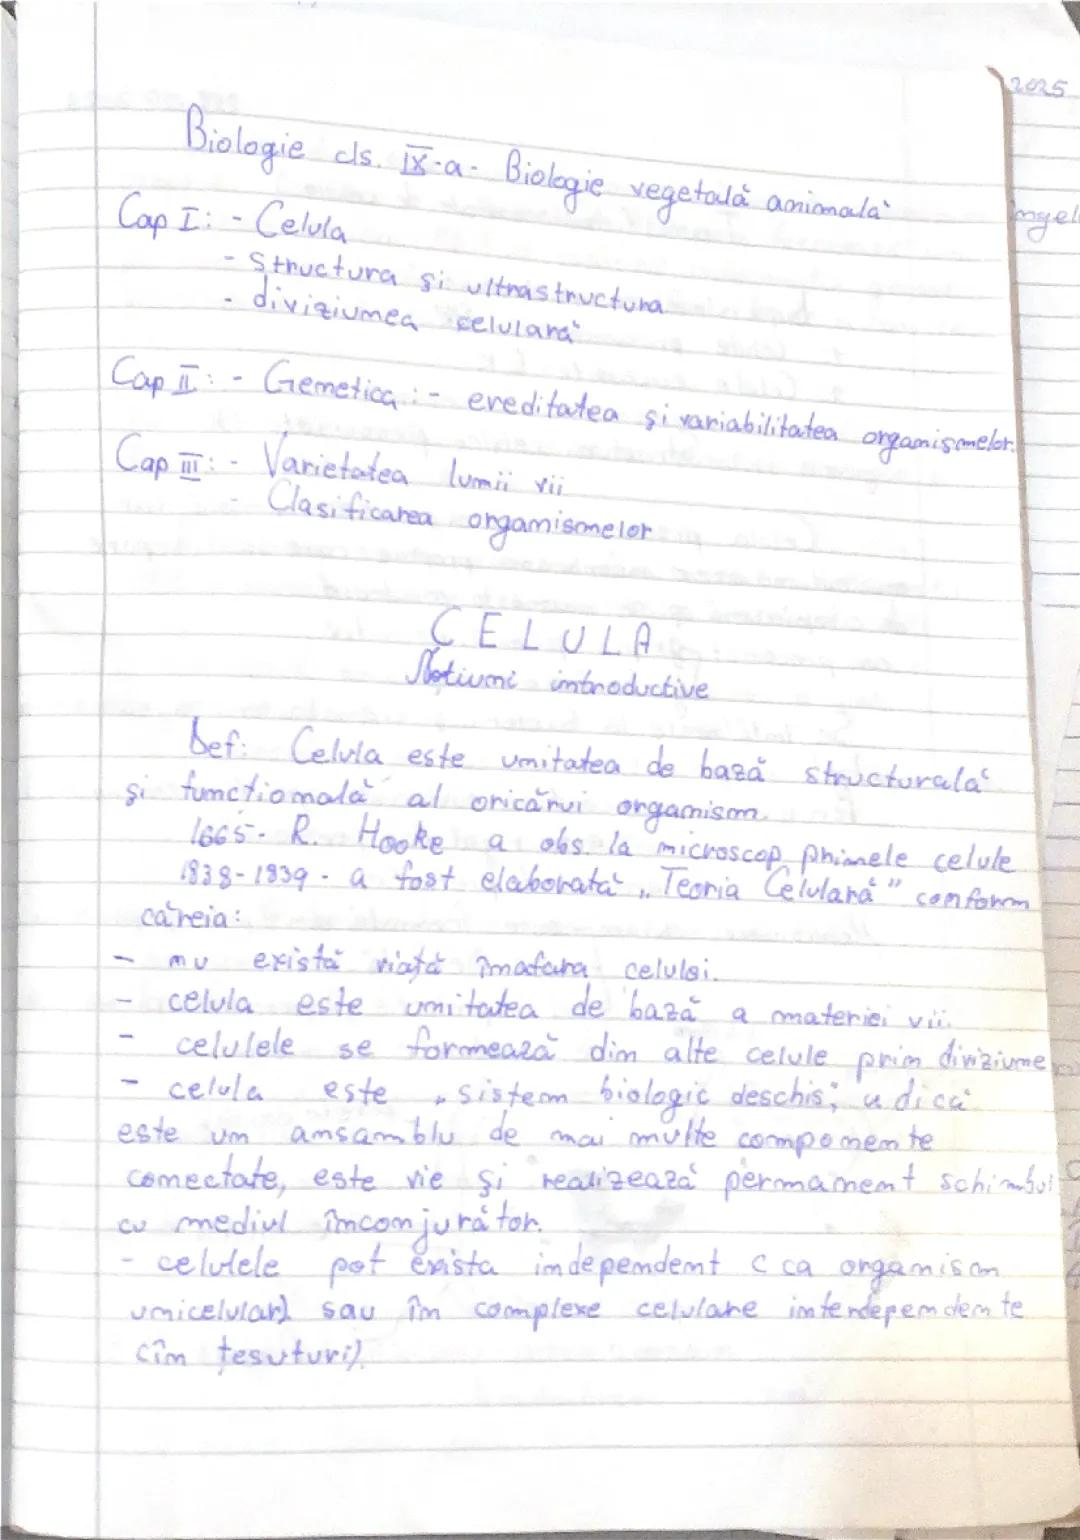 2025
Biologie cls. IX-a- Biologie vegetală animală
Cap I: - Celula
- Structura și ultrastructura
- diviziunea celulară
Cap II: - Genetica: - ereditatea și variabilitatea organismelor.
Cap III: - Varietatea lumii vii
- Clasificarea organismelor
CELULA
Notiuni introductive
Def: Celula este unitatea de bază structurală
și functională al oricărui organism.
1665- R. Hooke a obs. la microscop primele celule
1838-1839 - a fost elaborată „Teoria Celulară" conform
căreia:
- nu există viață înafara celulei.
- celula este unitatea de bază a materiei vii.
- celulele se formează din alte celule prin diviziune
- celula este „sistem biologic deschis; adică
este un ansamblu de mai multe componente
conectate, este vie și realizează permanent schimbul
cu mediul înconjurător.
- celulele pot exista independent (ca organism
unicelular) sau în complexe celulare interdependente
(în țesuturi).